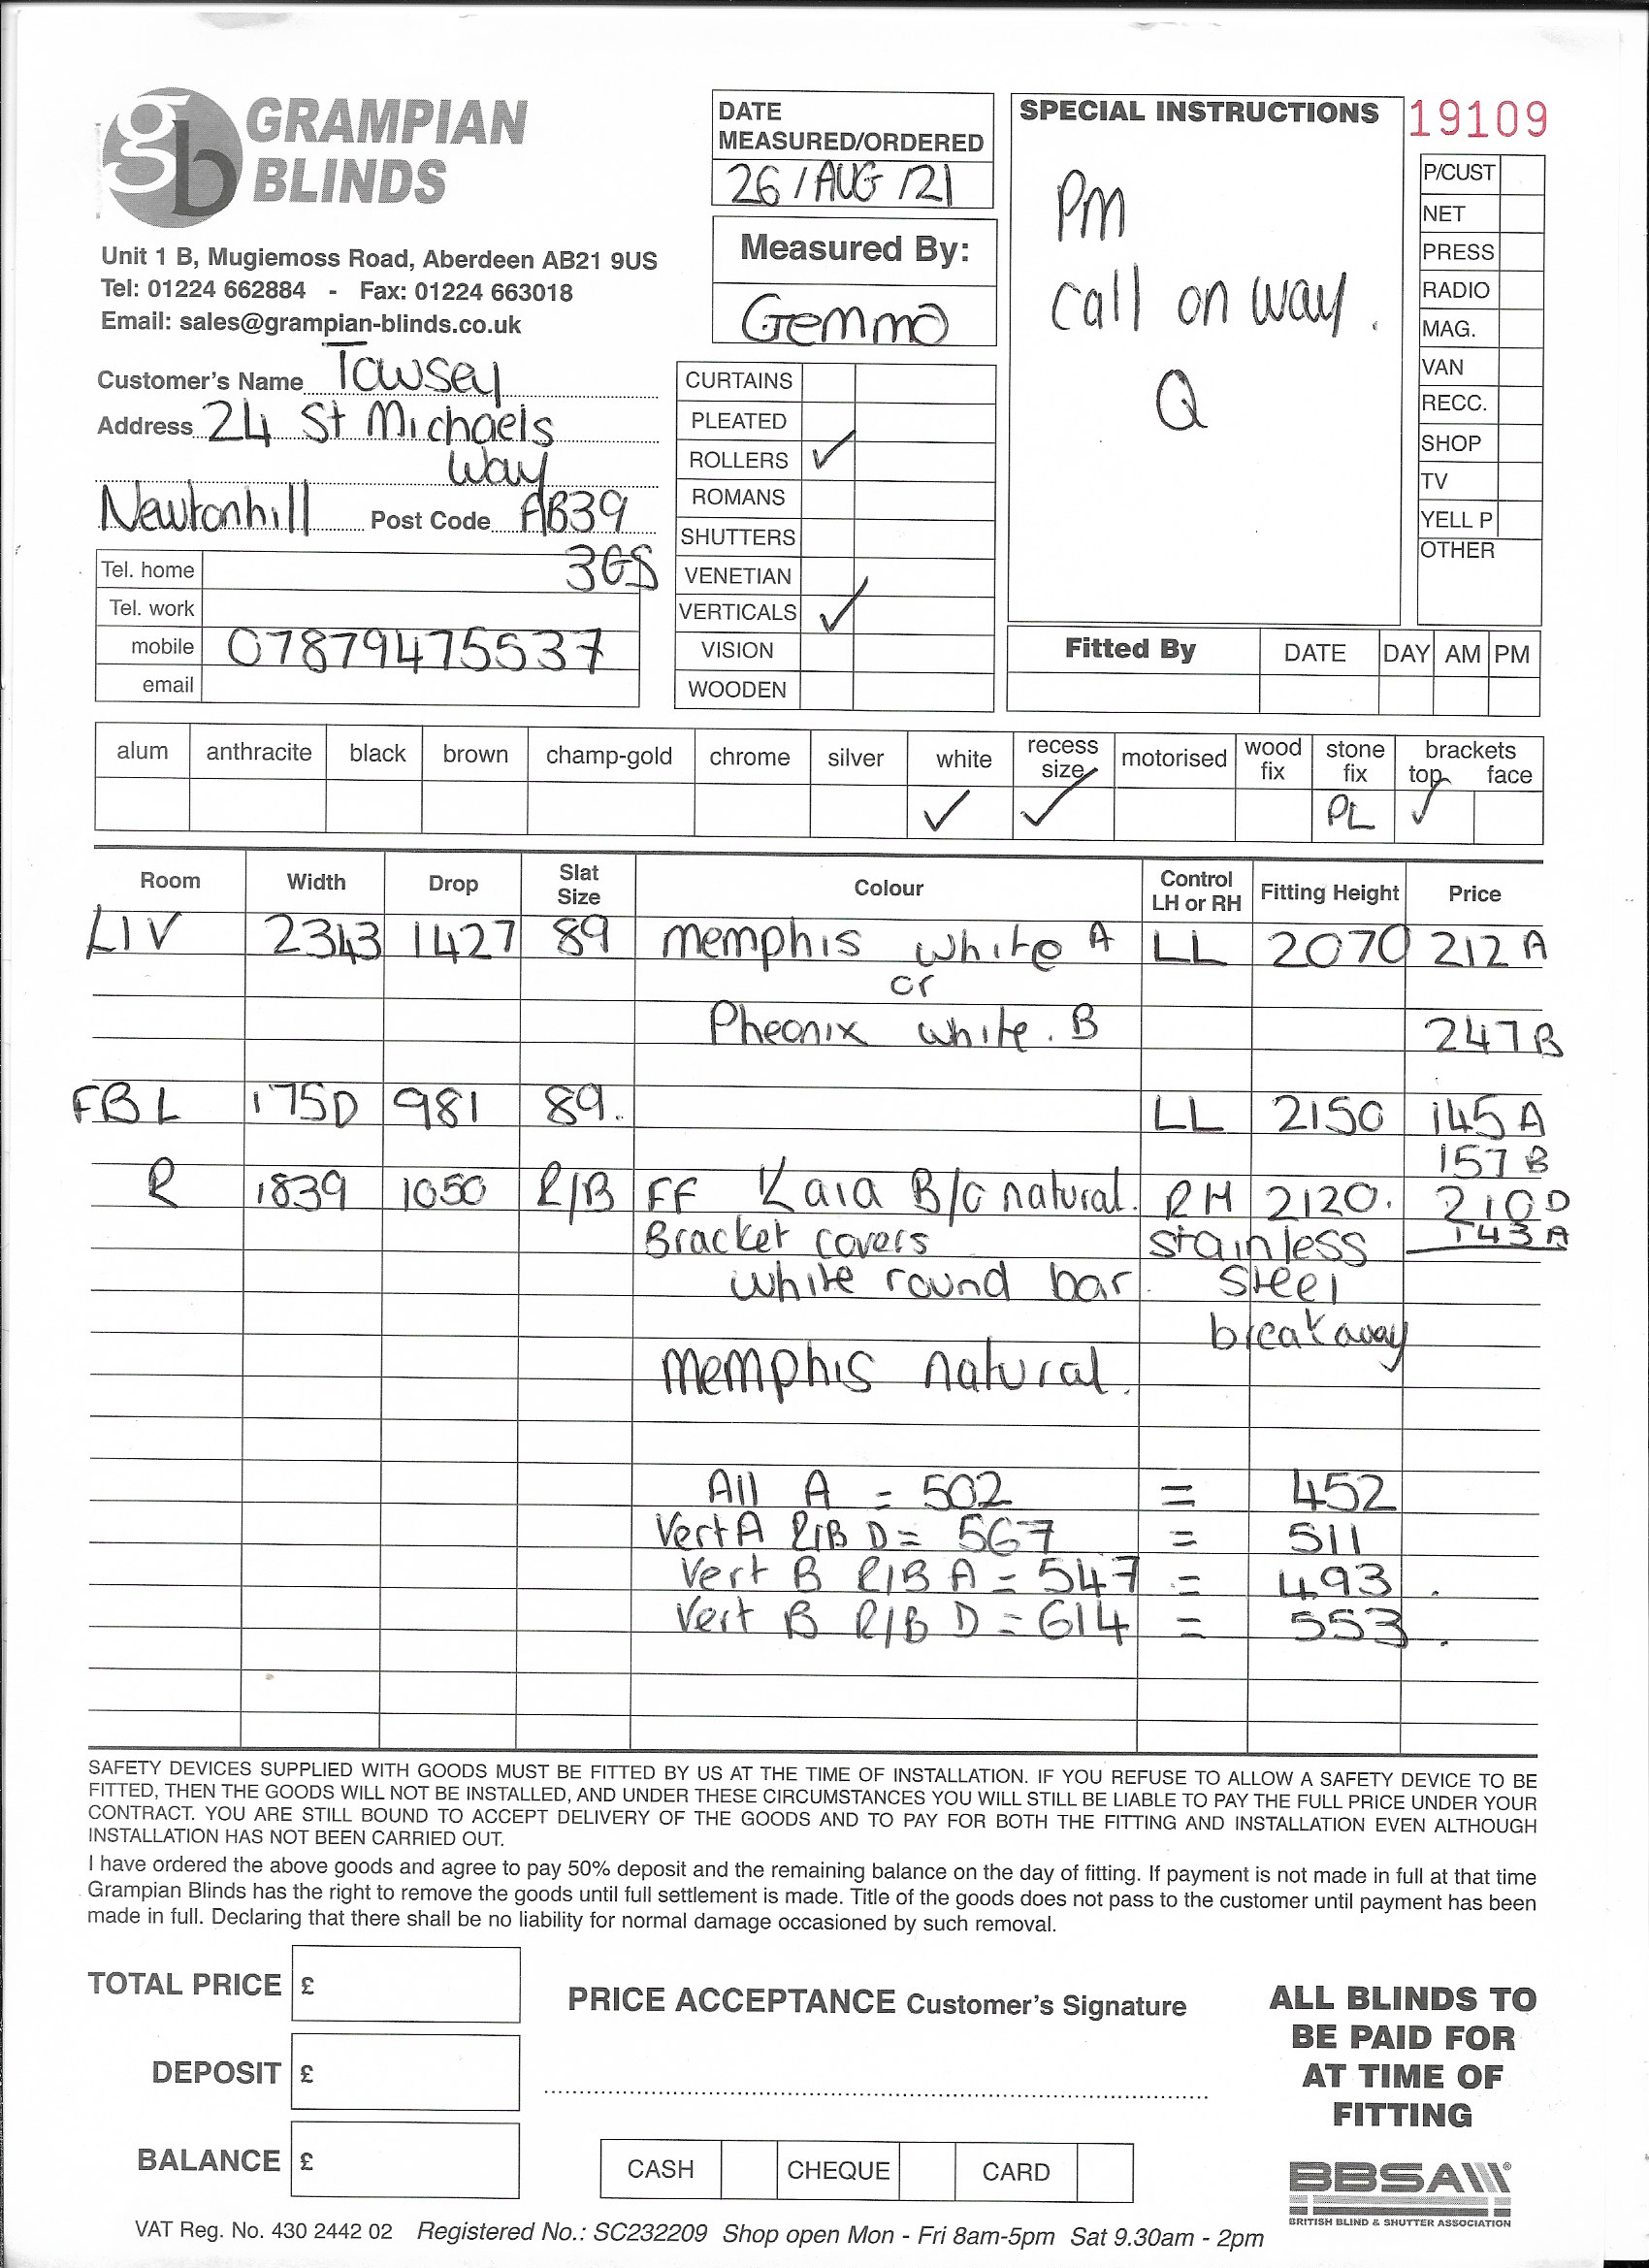 gb GRAMPIAN BLINDS
Unit 1 B, Mugiemoss Road, Aberdeen AB21 9US
Tel: 01224 662884 - Fax: 01224 663018
Email: sales@grampian-blinds.co.uk
Customer's Name Towsey
Address 24 St Michaels
Way
Newtonhill Post Code AB39
3GS
Tel. home
Tel. work
mobile 07879475537
email
DATE
MEASURED/ORDERED
26/AUG/21
Measured By:
Gemma
CURTAINS
PLEATED
ROLLERS ✓
ROMANS
SHUTTERS
VENETIAN
VERTICALS ✓
VISION
WOODEN
SPECIAL INSTRUCTIONS
PM
call on way.
Q
19109
P/CUST
NET
PRESS
RADIO
MAG.
VAN
RECC.
SHOP
TV
YELL P
OTHER
Fitted By DATE DAY AM PM
alum anthracite black brown champ-gold chrome silver white recess size motorised wood fix stone fix brackets top face
✓ ✓ PL ✓
Room Width Drop Slat Size Colour Control LH or RH Fitting Height Price
LIV 2343 1427 89 memphis white A LL 2070 212 A
or
Pheonix white. B 247 B
FBL 1750 981 89. LL 2150 145 A
157 B
R 1839 1050 R/B FF Kaia B/O natural. RH 2120. 210 D
Bracket covers stainless 143 A
white round bar. steel
breakaway
Memphis natural.
All A = 502 = 452
Vert A R/B D = 567 = 511
Vert B R/B A = 547 = 493.
Vert B R/B D = 614 = 553.
SAFETY DEVICES SUPPLIED WITH GOODS MUST BE FITTED BY US AT THE TIME OF INSTALLATION. IF YOU REFUSE TO ALLOW A SAFETY DEVICE TO BE
FITTED, THEN THE GOODS WILL NOT BE INSTALLED, AND UNDER THESE CIRCUMSTANCES YOU WILL STILL BE LIABLE TO PAY THE FULL PRICE UNDER YOUR
CONTRACT. YOU ARE STILL BOUND TO ACCEPT DELIVERY OF THE GOODS AND TO PAY FOR BOTH THE FITTING AND INSTALLATION EVEN ALTHOUGH
INSTALLATION HAS NOT BEEN CARRIED OUT.
I have ordered the above goods and agree to pay 50% deposit and the remaining balance on the day of fitting. If payment is not made in full at that time
Grampian Blinds has the right to remove the goods until full settlement is made. Title of the goods does not pass to the customer until payment has been
made in full. Declaring that there shall be no liability for normal damage occasioned by such removal.
TOTAL PRICE £
DEPOSIT £
BALANCE £
PRICE ACCEPTANCE Customer's Signature
CASH CHEQUE CARD
ALL BLINDS TO
BE PAID FOR
AT TIME OF
FITTING
BBSA
BRITISH BLIND & SHUTTER ASSOCIATION
VAT Reg. No. 430 2442 02 Registered No.: SC232209 Shop open Mon - Fri 8am-5pm Sat 9.30am - 2pm